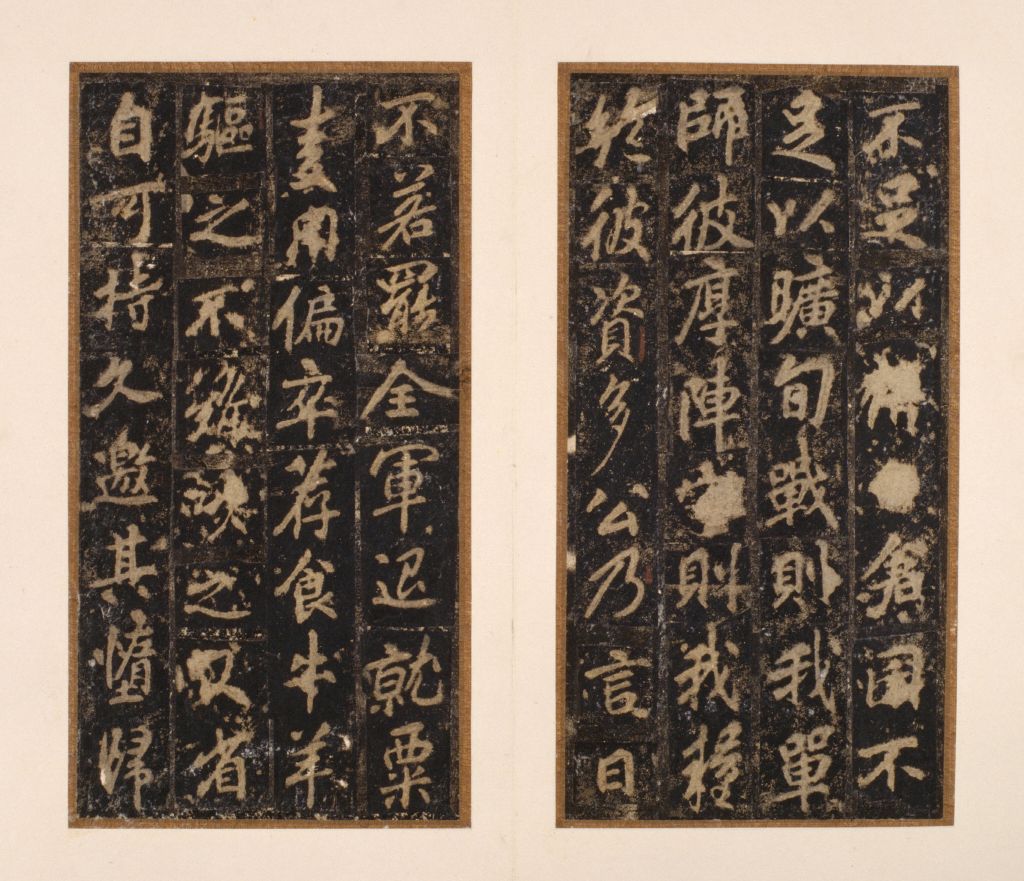 不足以倉不
足以曠旬戰則我單
師彼厚陣則我糧
彼資多公乃言曰
不若罷全軍退就粟
用偏卒荐食牛羊
驅之不難之又省
自可持久邀其墮歸